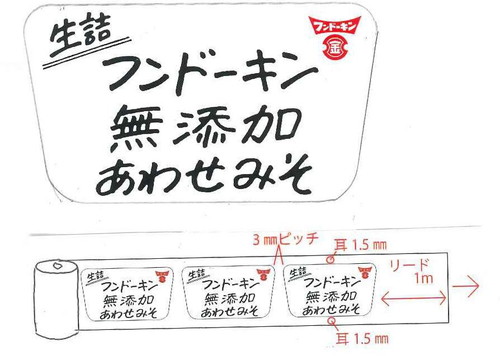 生詰
フンドーキン
金
フンドーキン
無添加
あわせみそ
3mmピッチ
耳1.5mm
リード
1m
生詰
フンドーキン
無添加
あわせみそ
生詰
フンドーキン
無添加
あわせみそ
生詰
フンドーキン
無添加
あわせみそ
耳1.5mm